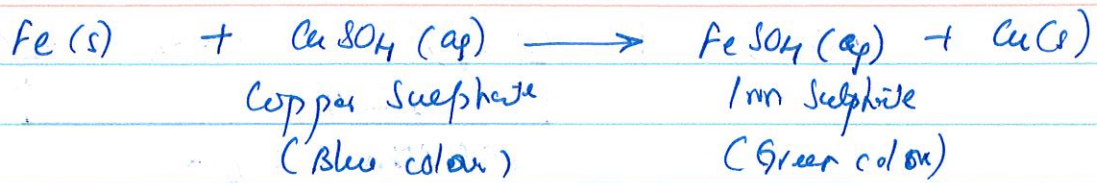 Fe (s) + CuSO4 (aq) → FeSO4 (aq) + Cu(s)
Copper Sulphate Iron Sulphate
(Blue colour) (Green colour)